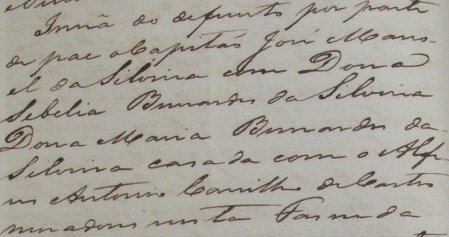 Irmã do defunto por parte
de pae o Capitão José Mano-
el da Silveira com Dona
Sebelia Bernardes da Silveira
Dona Maria Bernardes da
Silveira casada com o Alfe-
res Antonio Carrilho de Castro
moradores nesta Fasenda